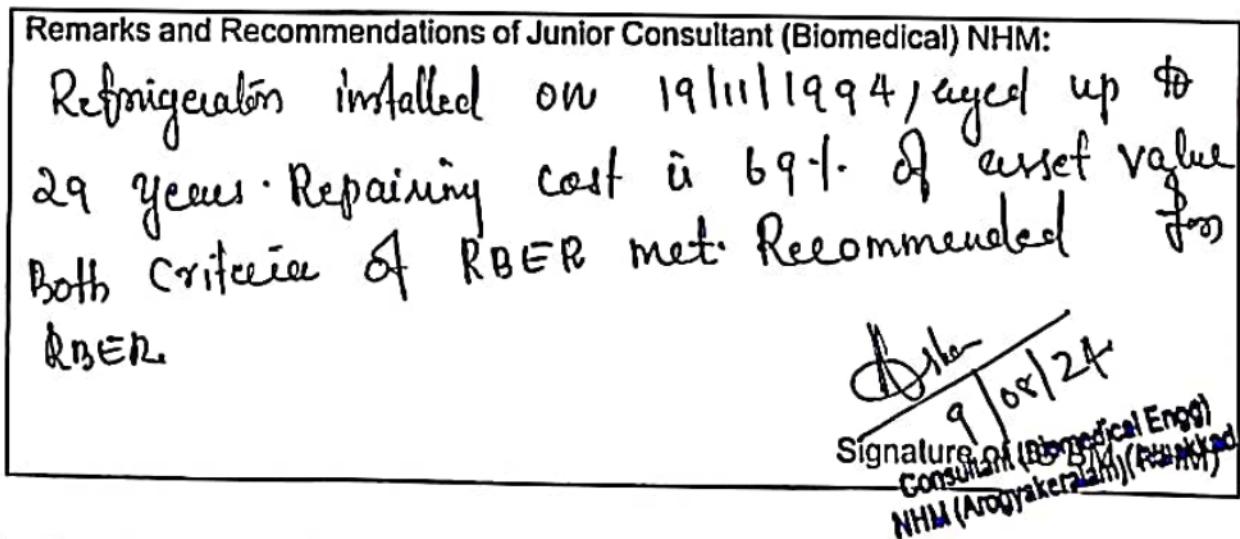 Remarks and Recommendations of Junior Consultant (Biomedical) NHM:
Refrigerator installed on 19/11/1994, aged up to
29 years. Repairing cost is 69% of asset value
Both Criteria of RBER met. Recommended for
RBER.
9/08/24
Signature of
Consultant (Biomedical Engg)
NHM (Arogyakeralam)